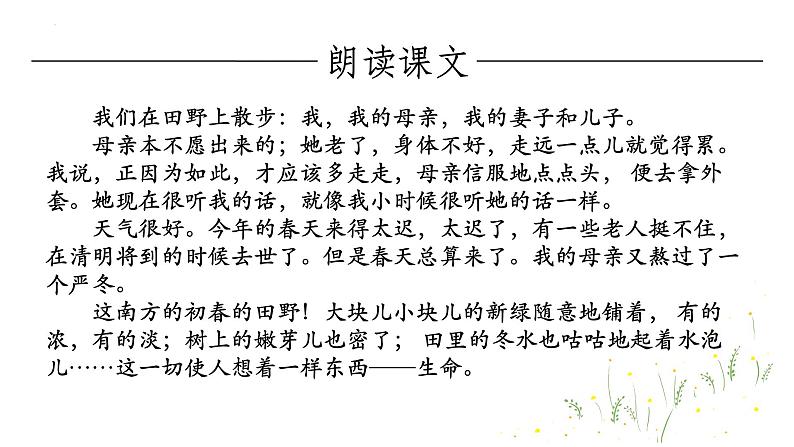 朗读课文
我们在田野上散步：我，我的母亲，我的妻子和儿子。
母亲本不愿出来的；她老了，身体不好，走远一点儿就觉得累。
我说，正因为如此，才应该多走走，母亲信服地点点头， 便去拿外
套。她现在很听我的话，就像我小时候很听她的话一样。
天气很好。今年的春天来得太迟，太迟了，有一些老人挺不住，
在清明将到的时候去世了。但是春天总算来了。我的母亲又熬过了一
个严冬。
这南方的初春的田野！大块儿小块儿的新绿随意地铺着， 有的
浓，有的淡；树上的嫩芽儿也密了； 田里的冬水也咕咕地起着水泡
儿……这一切使人想着一样东西——生命。